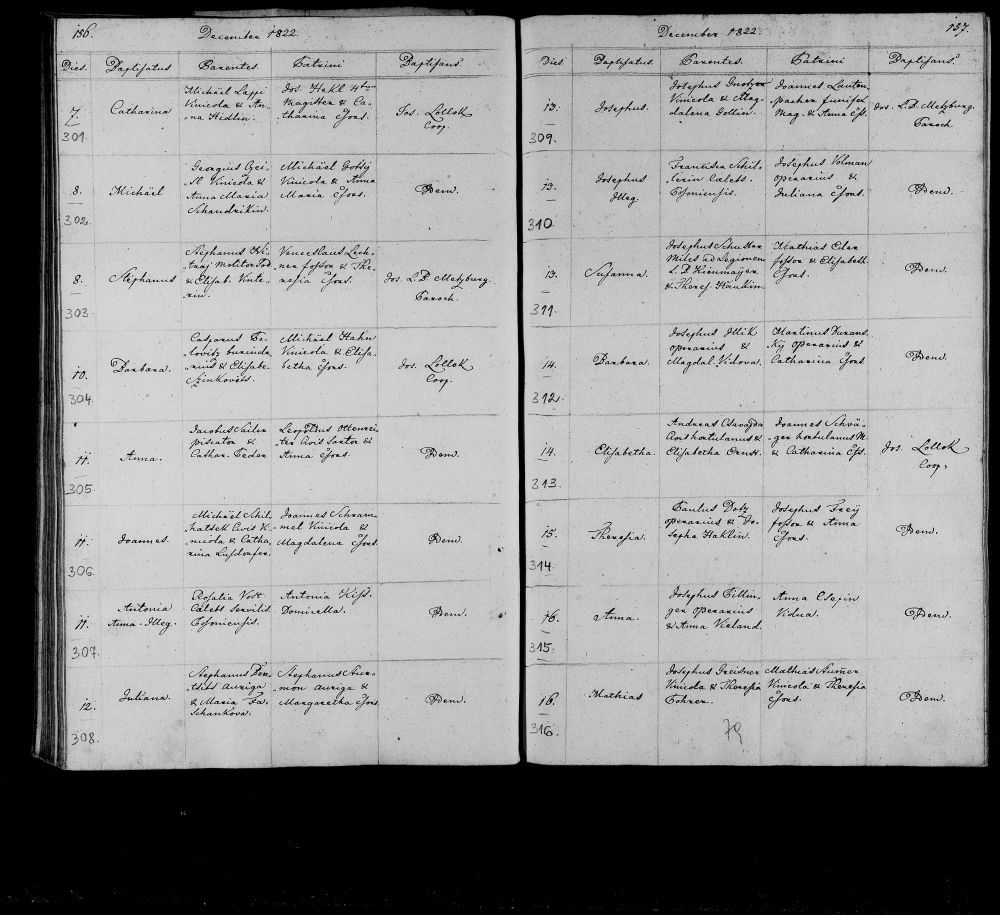 156.
December 1822.
Dies. Baptisatus Parentes. Patrini Baptisans.
7.
301.
Catharina
Michäel Lappi
Vinicola & An-
-na Hidlin.
Jos. Hekl
Magister & Ca-
tharina Cjons.
Jos. Lollok
Coop.
8.
302.
Michäel
Georgius
Vinicola &
Anna Maria
Schandrikin.
Michäel
Vinicola & Anna
Maria Cjons.
Idem.
8.
303.
Stephanus
Stephanus
Molitor
& Elisab.
Venceslaus Lech-
-ner fossor & The-
-resia Cjons.
Jos. L.B. Metzburg.
Paroch.
10.
304.
Barbara.
Casparus
-rius & Elisabe.
Szinkovits.
Michäel Hahn
Vinicola & Elisa-
betha Cjons.
Jos. Lollok
Coop.
11.
305.
Anna.
Jacobus Sailer
piscator &
Cathar. Feder
Leopoldus
Civis Sartor &
Anna Cjons.
Idem.
11.
306.
Joannes.
Michäel Schil-
-hatsek Civis Vi-
-nicola & Catha-
-rina
Joannes Schram-
-mel Vinicola &
Magdalena Cjons
Idem
11.
307.
Antonia
Anna. Illeg.
Rosalia Vost
Caelebs Servilis
Posoniensis.
Antonia Kiss.
Domicella.
Idem.
12.
308.
Juliana.
Stephanus
Auriga
& Maria Fa-
Schankova.
Stephanus
auriga &
Margaretha Cjons
Idem.
157.
December 1822.
Dies. Baptisatus. Parentes. Patrini Baptisans.
13.
309.
Josephus.
Josephus
Vinicola & Mag-
dalena Gollin.
Joannes
Mag. & Anna Cjs.
Jos. L.B. Metzburg.
Paroch
13.
310.
Josephus
Illeg.
Francisca Schil-
lerin Caelebs.
Posoniensis.
Josephus Volman
operarius &
Juliana Cjons.
Idem.
13.
311.
Susanna.
Josephus Schuster
Miles ad Legionem
L.B. Hienmajer
& Theres. Handin.
Mathias Eder
fossor & Elisabeth
Cjons.
Idem.
14.
312.
Barbara.
Josephus Mik
operarius &
Magdal Vidova.
Martinus Durans-
Ky operarius &
Catharina Cjons
Idem.
14.
313.
Elisabetha.
Andreas
Civis hortulanus &
Elisabetha Ernst.
Joannes Schvä-
-ger hortulanus M.
& Catharina Cjs.
Jos. Lollok
Coop.
15.
314.
Theresia.
Paulus Dotz
operarius & Jo-
sepha Haklin.
Josephus Freÿ
fossor & Anna
Cjons.
Idem.
16.
315.
Anna.
Josephus Pillin-
ger operarius
& Anna Vieland.
Anna
Vidua.
Idem.
16.
316.
Mathias
Josephus Greisner
Vinicola & Theresia
Rohrer.
Mathias
Vinicola & Theresia
Cjons.
Idem.
79